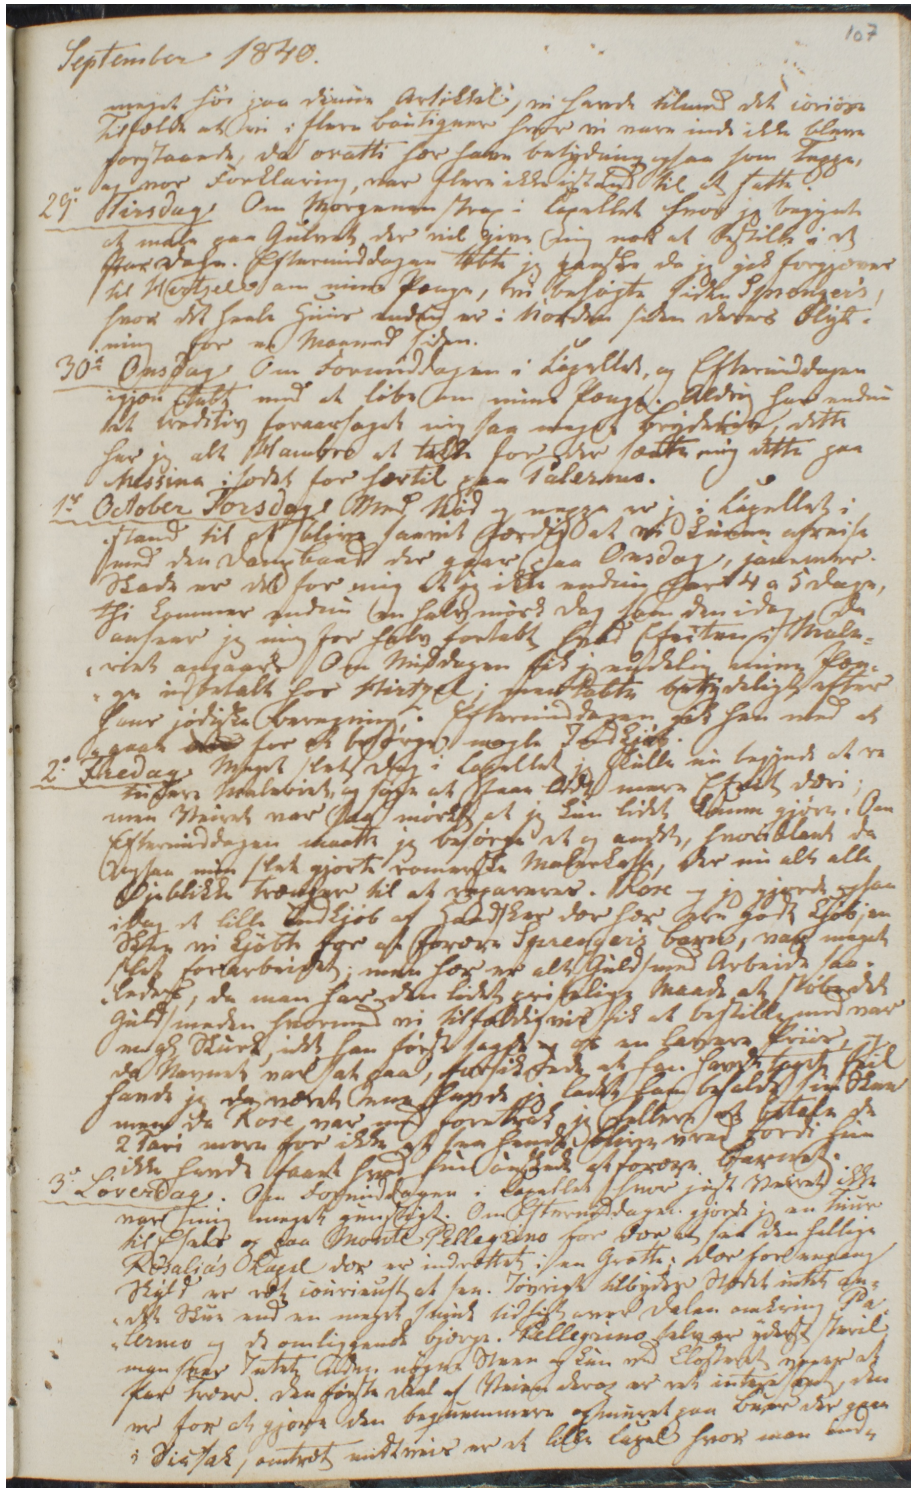 107
September 1840.
meget her paa denne Artikkel, vi havde tilmed det curiøse
Tilfælde at vi i flere boutiquer hvor vi vare inde ikke bleve
forstaaede, da oratti her have betydning ogsaa som Tappe,
og vor Forklaring, var flere ikke istand til at fatte.
29de Tirsdag Om Morgenen strax i Capellet hvor jeg begynte
at male paa Gulvet, der vil give mig nok at bestille i et
Par Dage. Eftermiddagen tabte jeg ganske da jeg gik forgjæves
til Hirtzel om mine Penge, vi besøgte siden Sprenger's,
hvor det heele Huus endnu er i Uorden siden deres Flyt-
ning for en Maaned siden.
30de Onsdag Om Formiddagen i Capellet, og Eftermiddagen
igjen tabt med at løbe om mine Penge. Aldrig har endnu
et Creditiv foraarsaget mig saa meget Bryderie, dette
har jeg alt Hambro at takke for der satte mig dette paa
Messina isædet for hertil paa Palermo.
1ste October Torsdag Med Nød og neppe er jeg i Capellet i
stand til at blive saavit færdig at vi kunne afreise
med den Dampbaad der gaaer paa Onsdag,
Skade er det for mig at jeg ikke endnu har 4 a 5 Dage,
thi kommer endnu en halvmørk Dag som den idag, da
anseer jeg mig for halv fortabt hvad Effekten i Male-
riet angaaer. Om Middagen fik jeg endelig mine Pen-
ge udbetalt hos Hirtzel; men tabte betydeligt efter
hans jødiske beregning. Eftermiddagen gik hen med at
gaae for at besørge nogle Indkjøb.
2den Fredag. Meget slet Dag i Capellet jeg skulle nu begynde at re
tuchere Maleriet, og søge at faae lidt mere Efект deri;
men Veiret var saa mørkt at jeg kun lidet kunne gjøre. Om
Eftermiddagen maatte jeg besørge et og andet, hvoriblant da
ogsaa min slet gjorte romerske Malerkasse, der nu alt alle
Øjeblikke trænger til at repareres. Rose og jeg gjorde ogsaa
idag et lille Indkjøb af Handsker der her ere godt Kjøb, en
Skee vi kjøbte for at forære Sprengers barn, var meget
slet forarbeidet; men her er alt Guldsmed Arbeide saa-
ledes, da man har den lidet priselige Maade at støbe det
Guldsmeden hvormed vi tilfældigvis fik at bestille med var
noget Skurk, idet han først sagde os en lavere Priis, og
da Navnet var sat paa, forsikkrede at han havde taget feil
havde jeg da været ene havde jeg ladet ham beholde sin Skee
men da Rose var med foretrak jeg hellere at betale de
2 Tari mere for ikke at see hende blive vred fordi hun
ikke havde faaet hvad hun ønskede at forære barnet.
3de Løverdag. Om Formiddagen i Capellet hvor just Veiret ikke
var mig meget gunstigt. Om Eftermiddagen gjorde jeg en Tuur
til Esels op paa Monte Pellegrino for der at see den hellige
Rosalias Kapel der er indrettet i en Grotte; der for engang
Skyld er ret courieust at see. Iøvrigt tilbyder Stedet intet an-
det Skue end en meget smuk Udsigt over Dalen omkring Pa-
lermo og de omliggende bjærge. Pellegrino selv er yderst steril,
man seer intet uden nøgne Steen og kun ved Closteret nogle at
Par træer. Den første Deel af Veien derop er ret interessant, den
er for at gjøre den beqvemmere opmuret paa buer der gaae
i Siksak, omtrent midtveis er et lille Capel hvor man end-